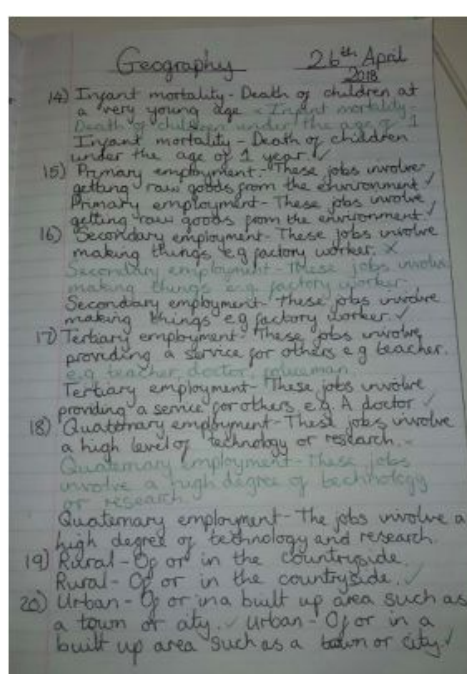 Geography 26th April
2018
14) Infant mortality - Death of children at
a very young age - Infant mortality -
Death of children under the age of 1
Infant mortality - Death of children
under the age of 1 year. ✓
15) Primary employment - These jobs involve
getting raw goods from the environment ✓
Primary employment - These jobs involve
getting raw goods from the environment ✓
16) Secondary employment - These jobs involve
making things e.g factory worker. X
Secondary employment - These jobs involve
making things e.g. factory worker.
Secondary employment - these jobs involve
making things e.g factory worker. ✓
17) Tertiary employment - These jobs involve
providing a service for others e.g teacher.
e.g teacher, doctor, policeman
Tertiary employment - These jobs involve
providing a service for others e.g. A doctor ✓
18) Quaternary employment - These jobs involve
a high level of technology or research.
Quaternary employment - These jobs
involve a high degree of technology
or research.
Quaternary employment - The jobs involve a
high degree of technology and research.
19) Rural - Of or in the countryside.
Rural - Of or in the countryside. ✓
20) Urban - Of or in a built up area such as
a town or city. ✓ Urban - Of or in a
built up area such as a town or city. ✓